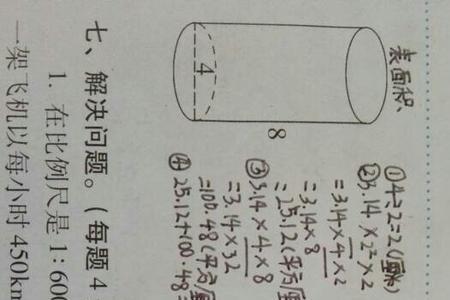 表面积:
①4÷2=2(厘米)
②3.14×2²×2
=3.14×4×2
=3.14×8
=25.12(平方厘
③3.14×4×8
=3.14×32
=100.48(平方厘
④25.12+100.48=
4
8
七、解决问题。(每题4
1. 在比例尺是1:600
一架飞机以每小时450km